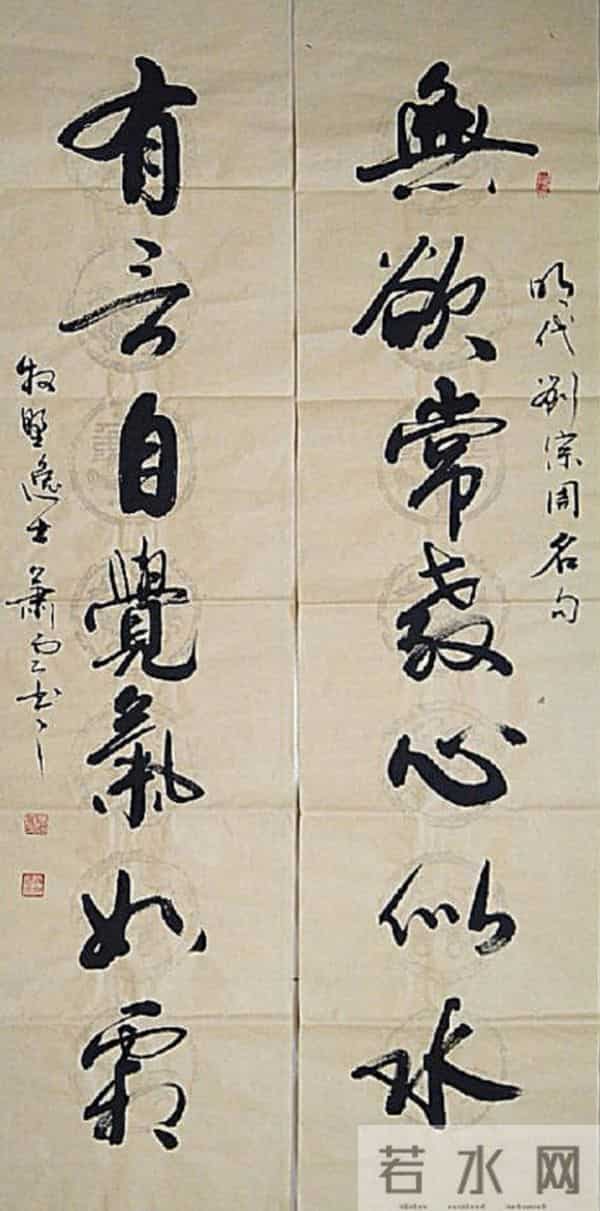 明代劉宗周名句
無欲常教心似水
有言自覺氣如霜
牧野逸士蕭雲書
若水网